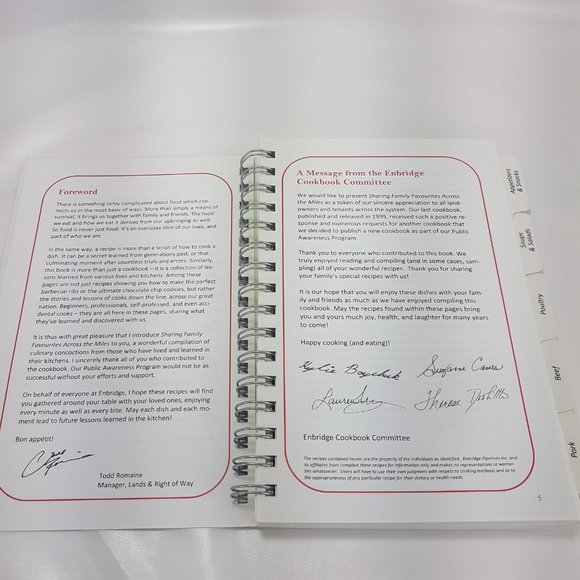 Foreword
There is something richly complicated about food which con-
nects us in the most basic of ways. More than simply a means of
survival, it brings us together with family and friends. The food
we eat and how we eat it derives from our upbringing as well.
So food is never just food. It's an everyday slice of our lives, and
part of who we are.
In the same way, a recipe is more than a script of how to cook a
dish. It can be a secret learned from generations past, or that
culminating moment after countless trials and errors. Similarly,
this book is more than just a cookbook – it is a collection of les-
sons learned from various lives and kitchens. Among these
pages are not just recipes showing you how to make the perfect
barbecue ribs or the ultimate chocolate chip cookies, but rather
the stories and lessons of cooks down the line, across our great
nation. Beginners, professionals, self-professed, and even acci-
dental cooks – they are all here in these pages, sharing what
they've learned and discovered with us.
It is thus with great pleasure that I introduce Sharing Family
Favourites Across the Miles to you, a wonderful compilation of
culinary concoctions from those who have lived and learned in
their kitchens. I sincerely thank all of you who contributed to
the cookbook. Our Public Awareness Program would not be as
successful without your efforts and support.
On behalf of everyone at Enbridge, I hope these recipes will find
you gathered around your table with your loved ones, enjoying
every minute as well as every bite. May each dish and each mo-
ment lead to future lessons learned in the kitchen!
Bon appétit!
Todd Romaine
Manager, Lands & Right of Way
A Message from the Enbridge
Cookbook Committee
We would like to present Sharing Family Favourites Across
the Miles as a token of our sincere appreciation to all land-
owners and tenants across the system. Our last cookbook,
published and released in 1999, received such a positive re-
sponse and numerous requests for another cookbook that
we decided to publish a new cookbook as part of our Public
Awareness Program.
Thank you to everyone who contributed to this book. We
truly enjoyed reading and compiling (and in some cases, sam-
pling) all of your wonderful recipes. Thank you for sharing
your family's special recipes with us!
It is our hope that you will enjoy these dishes with your fam-
ily and friends as much as we have enjoyed compiling this
cookbook. May the recipes found within these pages bring
you and yours much joy, health, and laughter for many years
to come!
Happy cooking (and eating)!
Enbridge Cookbook Committee
The recipes contained herein are the property of the individuals as identified. Enbridge Pipelines Inc. and
its affiliates have compiled these recipes for information only and makes no representations or warran-
ties whatsoever. Users will have to use their own judgment with respect to cooking methods and as to
the appropriateness of any particular recipe for their dietary or health needs.
5
Appetizers
& Snacks
Soups
& Salads
Poultry
Beef
Pork